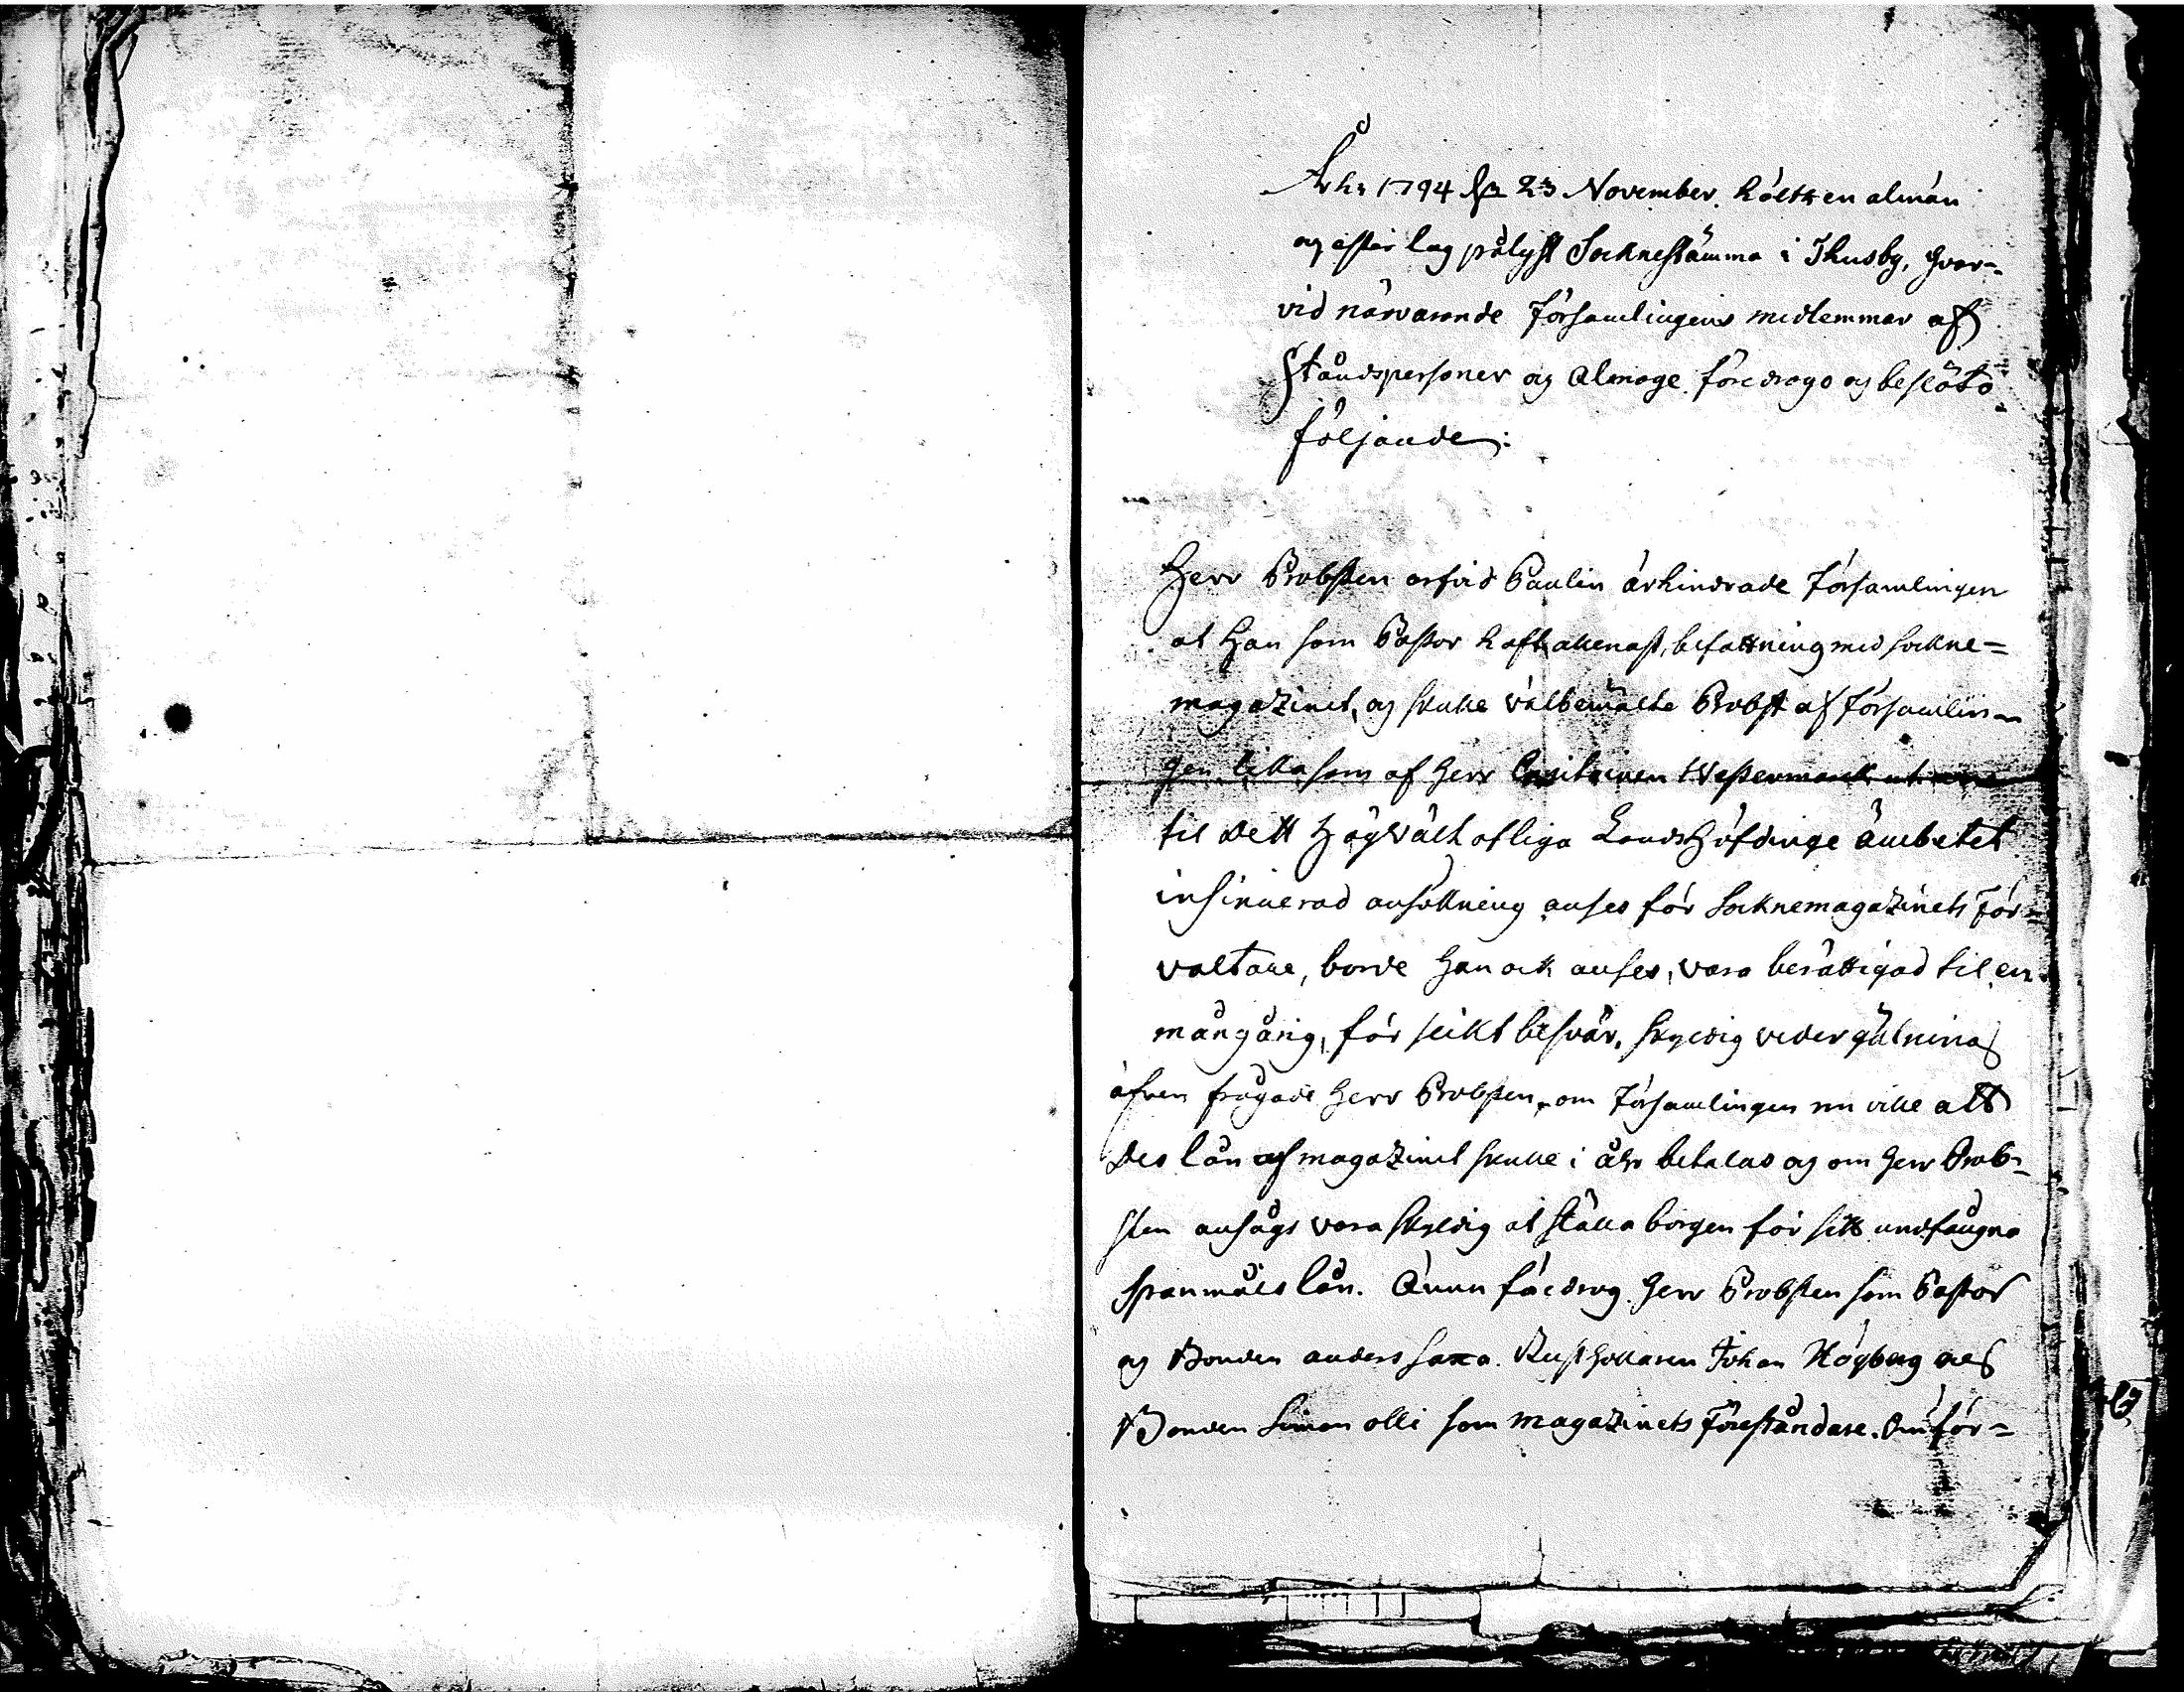 Åhr 1794 d. 23 November höltz en almän
og efter lag pålyst Soknestämma i Thusby, hvar=
vid närvarande Församlingens medlemmar af
Ståndspersoner og Almoge föredrogo og beslöto
följande:
Herr Probsten arfvid Paulin ärhindrade Församlingen
at Han som Pastor haft allenast, befattning med sokne=
magazinet, og skulle välbemälte Probst af Församlin=
gen lika som af Herr Westermarck
til Dett HögVälhofliga LandsHöfdinge ämbetet
insinuerad ansökning anses för Soknemagazinets För=
valtare, borde Han ock anses, vara berättigad til en
mångårig, för slikt besvär, skyldig vedergälning
äfven frågade Herr Probsten, om Församlingen nu ville att
Des lån af magazinet skulle i åhr betalas og om Herr Prob=
sten ansågs vara skyldig at ställa borgen för sitt undfångna
Spanmåls lån. Ännu föredrog Herr Probsten som Pastor
og Bonden anders Saxa. Rusthollaren Johan Högberg och
Bonden Simon olli som magazinets Föreståndare. Om för=